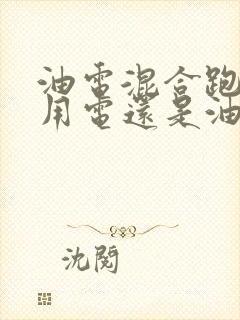 油電混合跑
用電還是油
沈閱